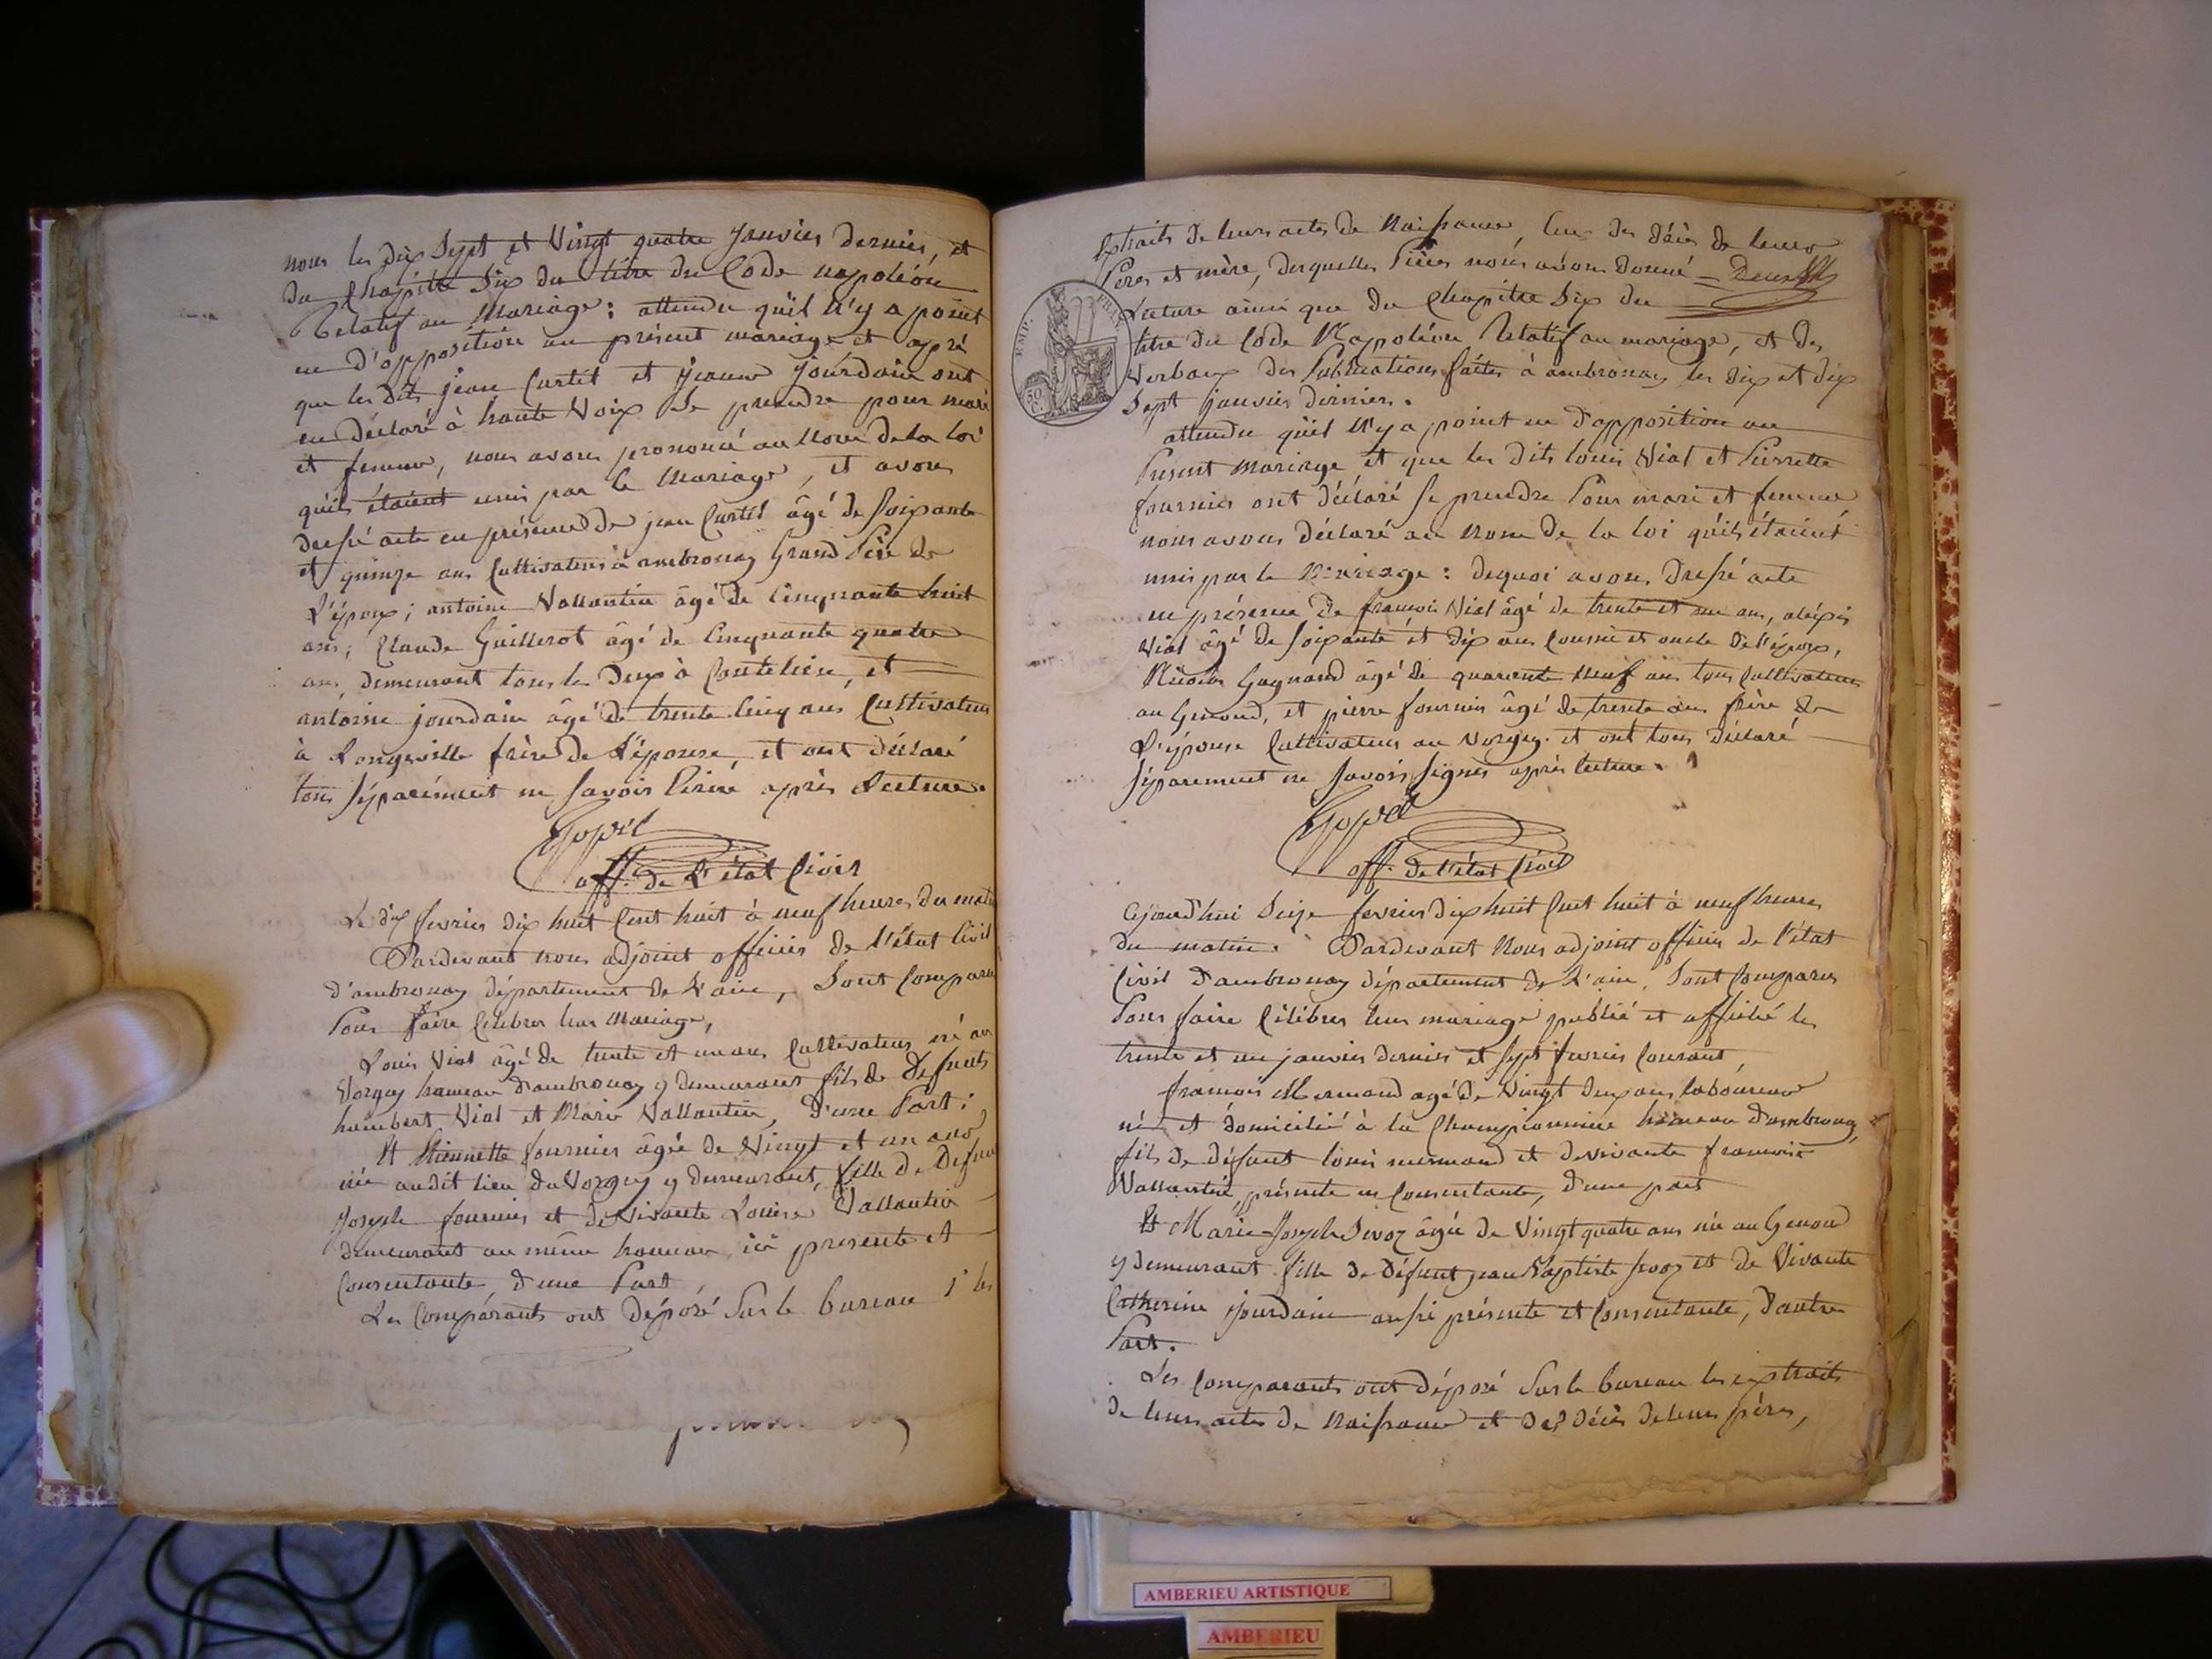 nous les dix Sept et Vingt quatre Janvier dernier, et
du Chapitre Six du titre du Code napoléon
Relatif au Mariage : attendu qu'il n'y a point
eu d'opposition au présent mariage et apré
que les dits jean Curtil et jeanne jourdain ont
eu déclaré à haute Voix Se prendre pour mari
et femme, nous avons prononcé au Nom de la loi
qu'ils étaient unis par le Mariage, et avons
dressé acte en présence de jean Curtil âgé de Soixante
et quinze ans Cultivateur à ambronay Grand Père de
L'époux ; antoine Vallantin âgé de Cinquante huit
ans, Claude Guillerot âgé de Cinquante quatre
ans, demeurant tous les Deux à , et
antoine jourdain âgé de trente Cinq ans Cultivateur
à Longeville frère de L'épouse, et ont déclaré
tous séparément ne savoir Ecrire après Lecture.
off. de L'état Civil
Le dix fevrier dix huit Cent huit à neuf heures du matin
Pardevant nous adjoint officier de l'état Civil
d'ambronay département de L'ain, Sont Comparu
Pour faire Célébrer leur Mariage,
Louis Vial âgé de trente et un ans Cultivateur né au
Vorgey hameau d'ambronay y demeurant fils de Defunts
humbert Vial et Marie Vallantin, D'une Part ;
Et fournier âgée de Vingt et un ans
née audit lieu du Vorgey y demeurant, fille de Defunt
Joseph fournier et de Vivante Louise Vallantin
demeurant au même hameau ici presente et
Consentante, d'une Part,
Les Comparants ont Déposé Sur le bureau 1° les
Extraits de leurs actes de Naissance, Ceux des décès de leurs
Peres et mère, desquelles Pièces nous avons donné =
Lecture ainsi que du Chapitre Six du
titre du Code Napoléon Relatif au mariage, et des
Verbaux des Publications faites à ambronay les dix et dix
Sept janvier dernier.
EMP. FRAN.
50
C.
attendu qu'il N'y a point eu d'opposition au
Présent Mariage et que les dits Louis Vial et Pierrette
fournier ont déclaré se prendre Pour mari et femme
nous avons déclaré au Nom de la Loi qu'ils étaient
unis par le Mariage : dequoi avons Dressé acte
en présence de françois Vial âgé de trente et un ans, alexis
Vial âgé de Soixante et dix ans Cousin et oncle de l'époux,
Nicolas Gagnand âgé de quarante Neuf ans tous Cultivateurs
au Genoud, et pierre fournier âgé de trente ans frère de
L'épouse Cultivateur au Vorgey. et ont tous déclaré
séparement ne savoir signer après lecture.
off. de l'état Civil
Cejourd'hui Seize fevrier dix huit Cent huit à neuf heures
du matin. Pardevant Nous adjoint officier de l'état
Civil d'ambronay département de L'ain, Sont Comparus
Pour faire Célébrer leur mariage publié et affiché les
trente et un janvier dernier et Sept fevrier Courant,
françois Mermand agé de Vingt Deux ans laboureur
né et domicilié à la Championnière hameau d'ambronay
fils de défunt louis mermand et de vivante françoise
Vallantin, présente et Consentante, d'une part
Et Marie-Joseph Sevoz âgée de Vingt quatre ans née au Genoud
y demeurant fille de défunt jean Baptiste Sevoz et de Vivante
Catherine jourdain aussi présente et Consentante, d'autre
Part.
Les Comparants ont déposé Sur le bureau les extraits
de leurs actes de Naissance et des décès de leurs pères,
AMBERIEU ARTISTIQUE
AMBERIEU